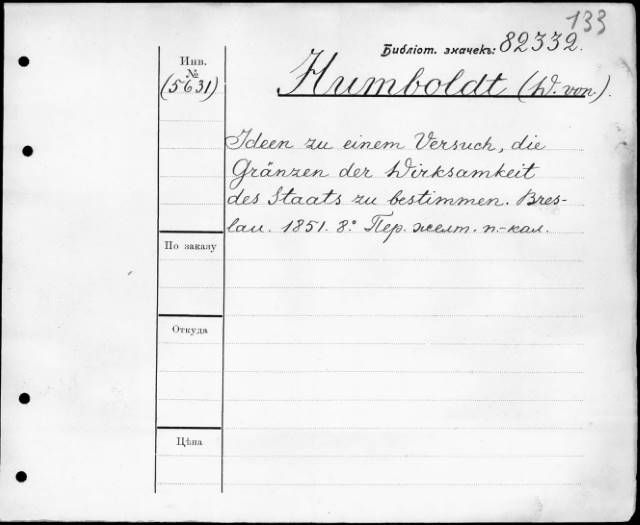 133
Библіот. значекъ: 82332.
Инв.
№
(5631)
Humboldt (W. von.).
Ideen zu einem Versuch, die
Gränzen der Wirksamkeit
des Staats zu bestimmen. Bres-
lau. 1851. 8º Пер. желт. п.-кал.
По заказу
Откуда
Цѣна